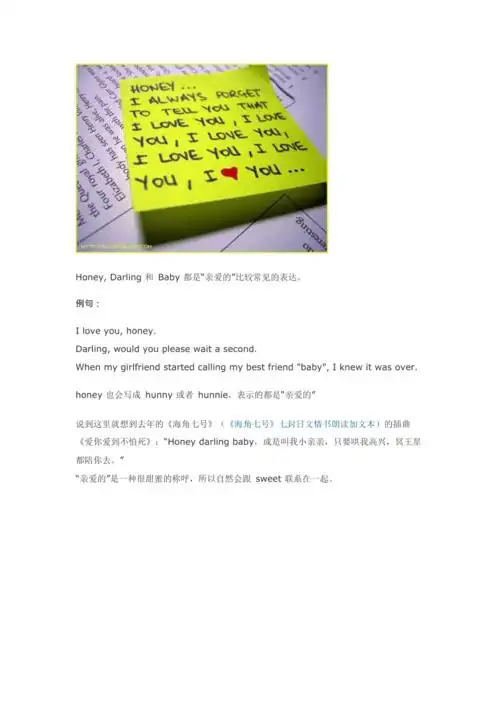 HONEY...
I ALWAYS FORGET
TO TELL YOU THAT
I LOVE YOU, I LOVE
YOU, I LOVE YOU,
I LOVE YOU, I LOVE
YOU, I ❤ YOU ...
Honey, Darling 和 Baby 都是“亲爱的”比较常见的表达。
例句：
I love you, honey.
Darling, would you please wait a second.
When my girlfriend started calling my best friend "baby", I knew it was over.
honey 也会写成 hunny 或者 hunnie，表示的都是“亲爱的”
说到这里就想到去年的《海角七号》（《海角七号》七封日文情书朗读加文本）的插曲
《爱你爱到不怕死》：“Honey darling baby，或是叫我小亲亲，只要哄我高兴，冥王星
都陪你去。”
“亲爱的”是一种很甜蜜的称呼，所以自然会跟 sweet 联系在一起。